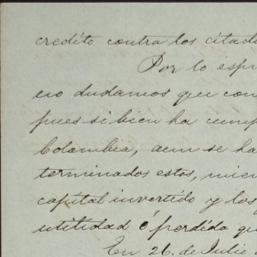 credito contra los citad
Por lo esp
no dudamos que con
pues si bien ha cump
Colombia, aun se ha
terminados estos, mien
capital invertido y los
utilidad é perdida qu
En 26. de Julio